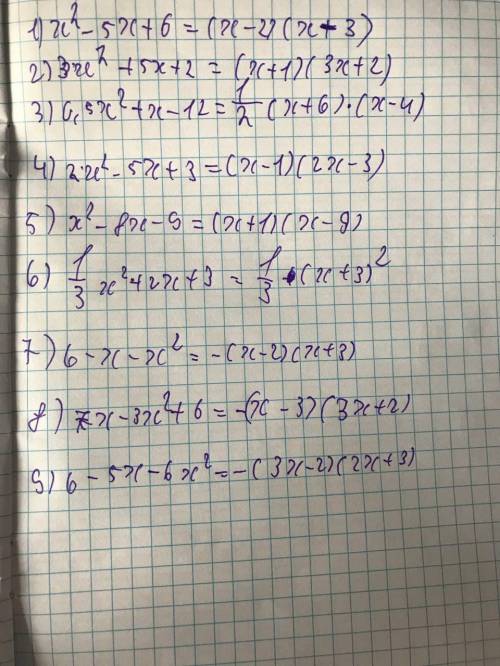 1) x² - 5x + 6 = (x - 2)(x - 3)
2) 3x² + 5x + 2 = (x + 1)(3x + 2)
3) 0,5x² + x - 12 = 1/2 (x + 6)·(x - 4)
4) 2x² - 5x + 3 = (x - 1)(2x - 3)
5) x² - 8x - 9 = (x + 1)(x - 9)
6) 1/3 x² + 2x + 3 = 1/3 · (x + 3)²
7) 6 - x - x² = -(x - 2)(x + 3)
8) 7x - 3x² + 6 = -(x - 3)(3x + 2)
9) 6 - 5x - 6x² = -(3x - 2)(2x + 3)